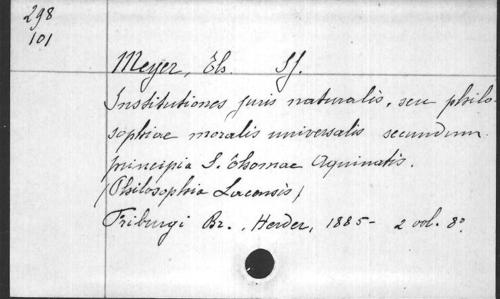 298
101
Meyer, Th. SJ.
Institutiones juris naturalis, seu philo-
sophiae moralis universalis secundum
principia S. Thomae Aquinatis.
(Philosophia Lacensis)
Friburgi Br., Herder, 1885- 2 vol. 8°